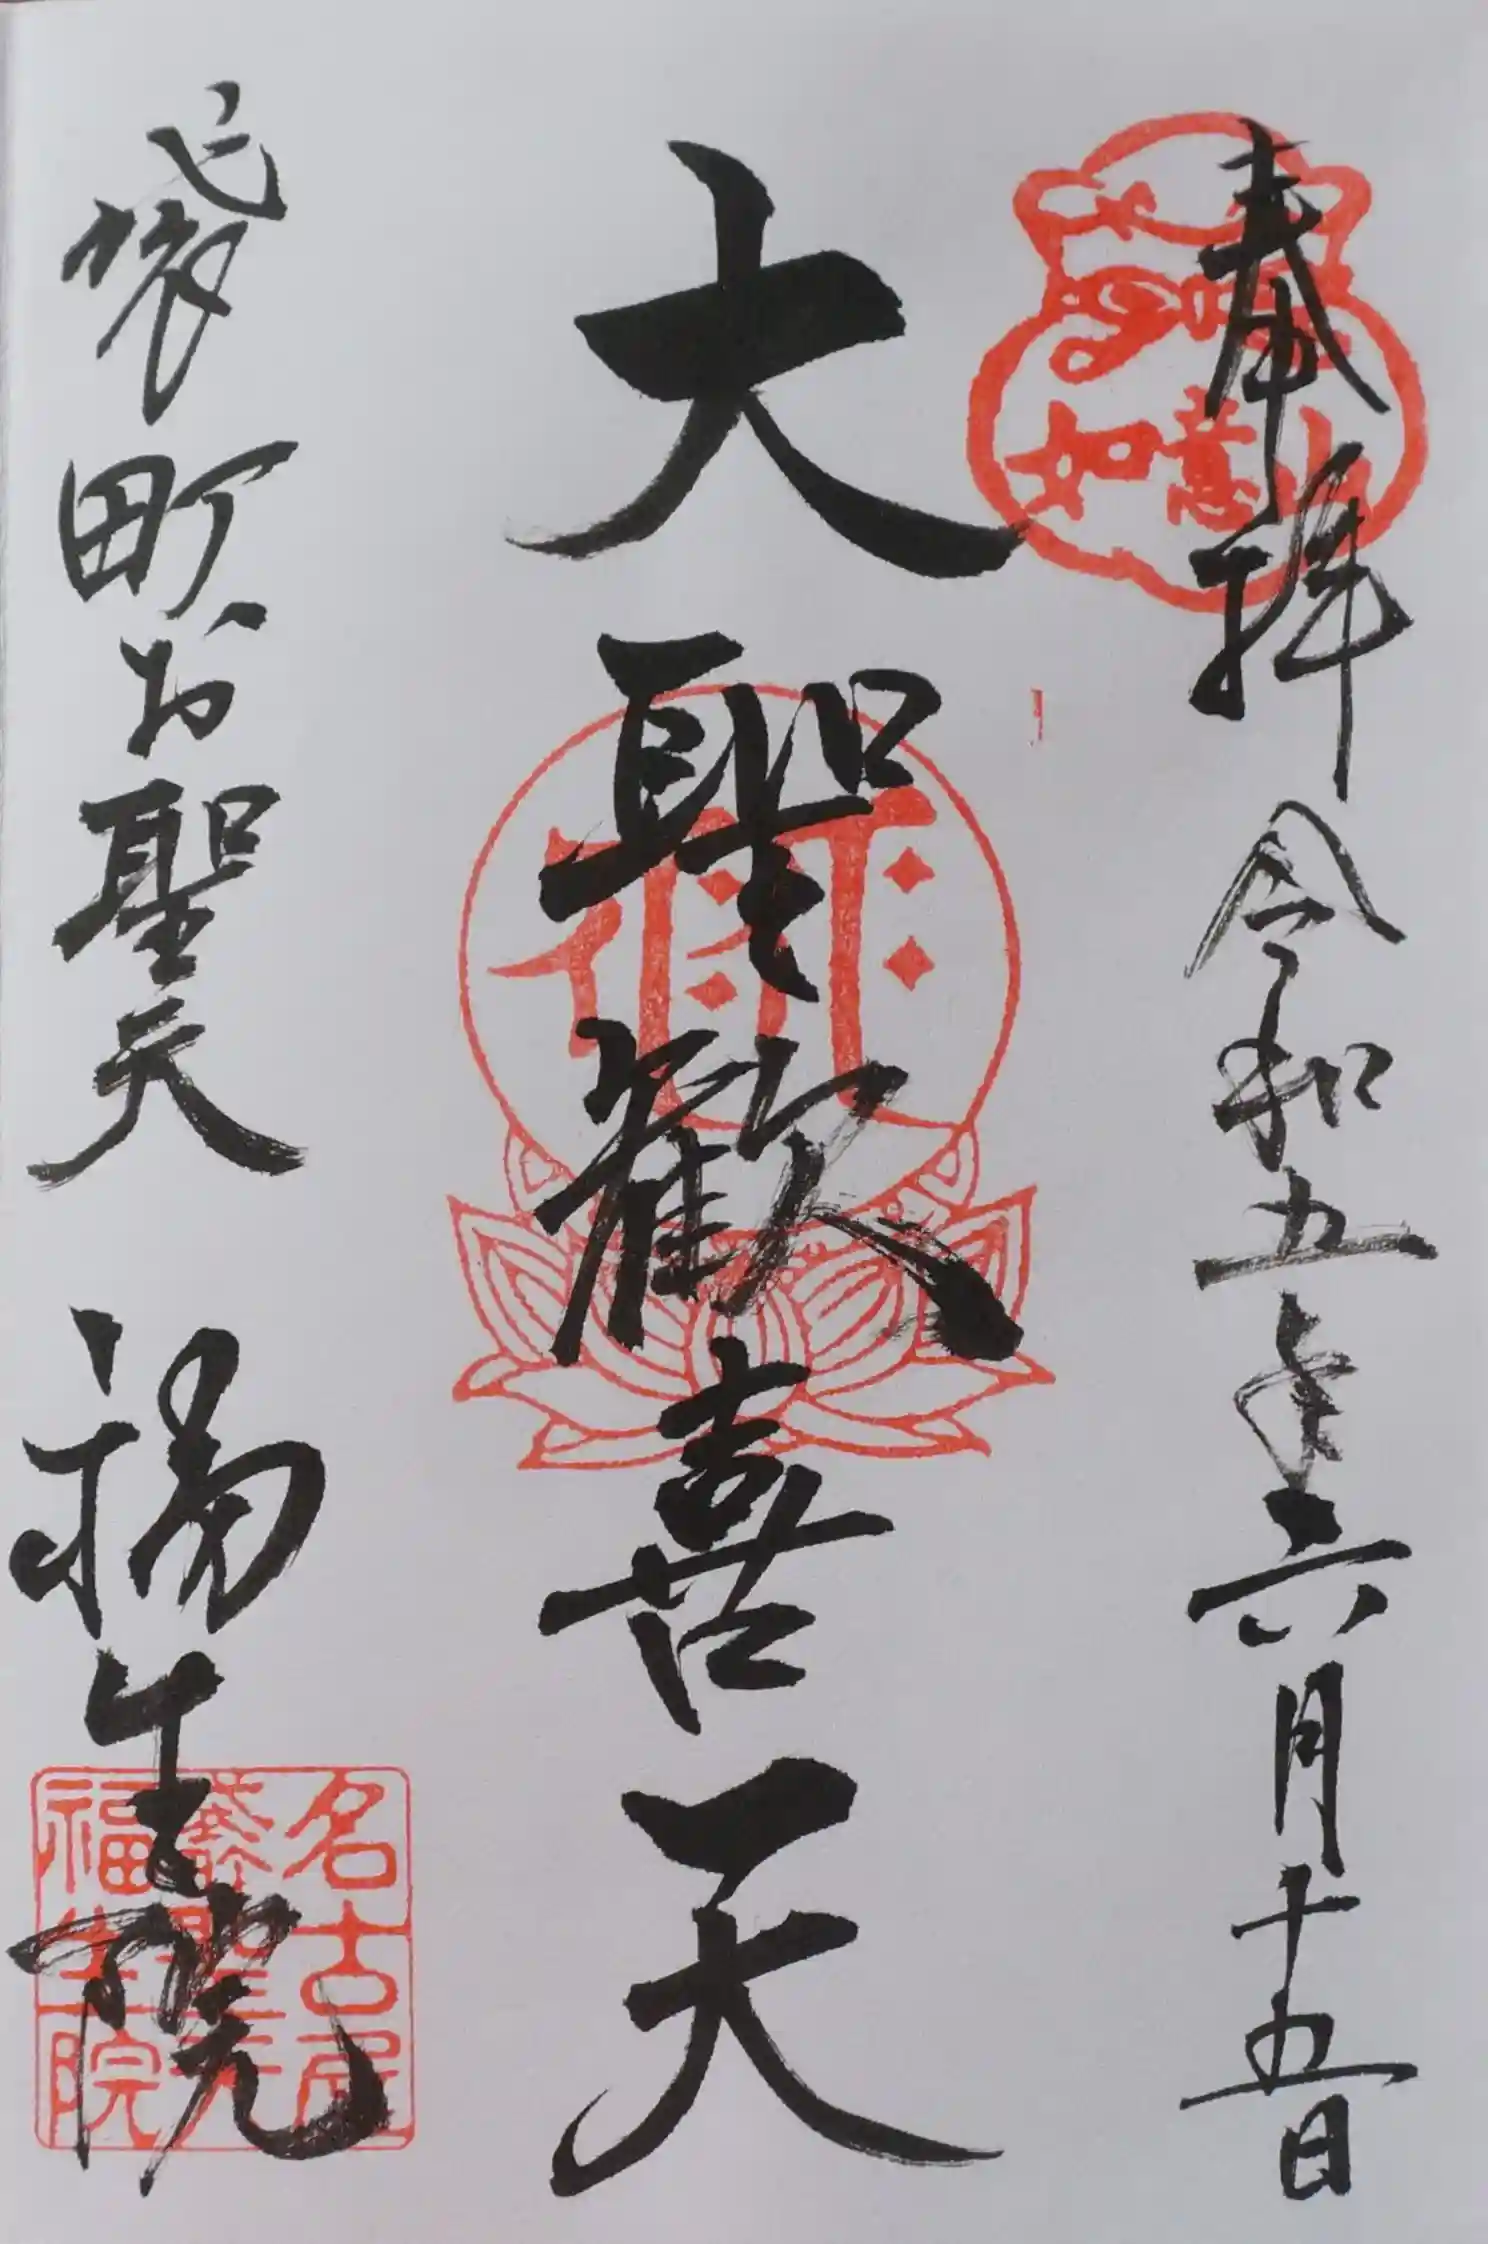 奉拝 令和五年六月十五日
如意山
大聖歓喜天
袋町お聖天 福生院
名古屋
聖天
福生院